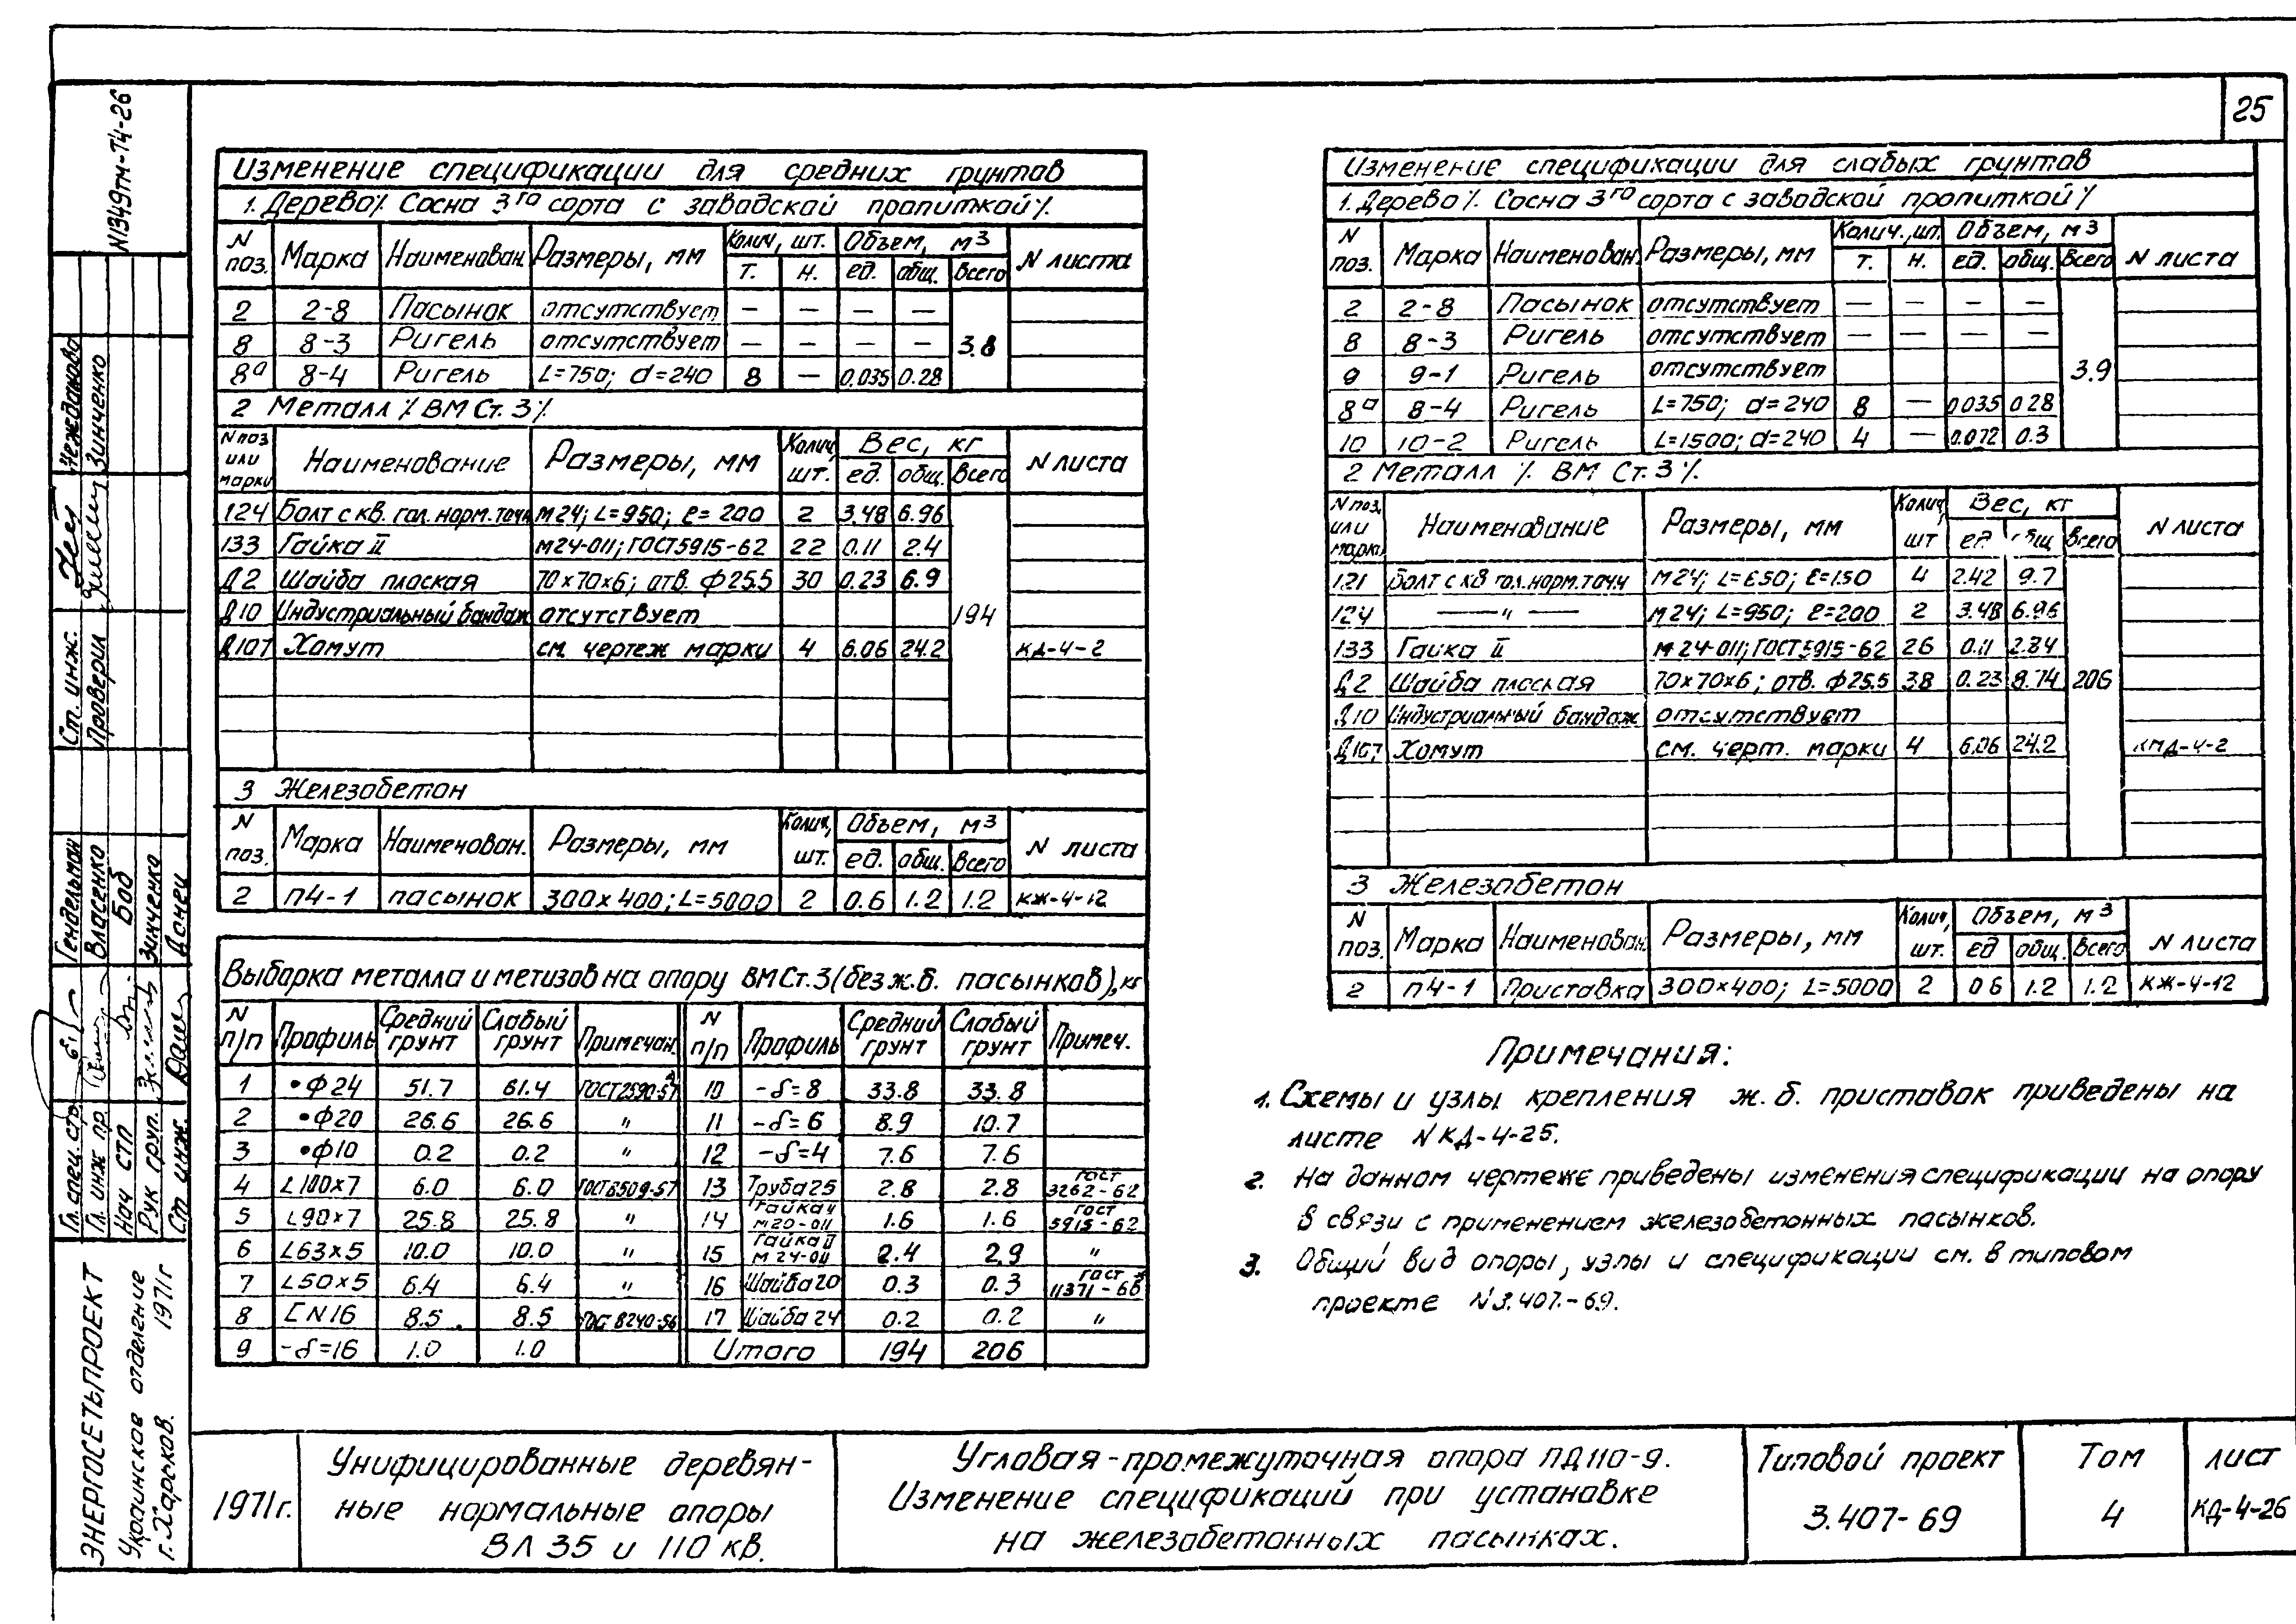 25
N1349тм-Т4-26
Изменение спецификации для средних грунтов
1. Дерево /. Сосна 3го сорта с заводской пропиткой /.
N поз. Марка Наименован. Размеры, мм Колич, шт. Объем, м3 N листа
т. н. ед. общ. Всего
2 2-8 Пасынок отсутствует — — — —
8 8-3 Ригель отсутствует — — — — 3.8
8а 8-4 Ригель L=750; d=240 8 — 0.035 0.28
2 Металл /. ВМ Ст. 3 /.
N поз или марки Наименование Размеры, мм Колич, шт. Вес, кг N листа
ед. общ. Всего
124 Болт с кв. гол. норм. точн М24; L=950; ℓ=200 2 3.48 6.96
133 Гайка II М24-011; ГОСТ 5915-62 22 0.11 2.4
Д2 Шайба плоская 70×70×6; отв. ф 25.5 30 0.23 6.9
Д10 Индустриальный бандаж отсутствует 194
Д107 Хомут см. чертеж марки 4 6.06 24.2 КД-4-2
3 Железобетон
N поз. Марка Наименован. Размеры, мм Колич, шт. Объем, м3 N листа
ед. общ. Всего
2 П4-1 пасынок 300×400; L=5000 2 0.6 1.2 1.2 КЖ-4-12
Выборка металла и метизов на опору ВМ Ст. 3 (без ж.б. пасынков), кг
N п/п Профиль Средний грунт Слабый грунт Примечан. N п/п Профиль Средний грунт Слабый грунт Примеч.
1 •ф24 51.7 61.4 ГОСТ 2590-57 10 -δ=8 33.8 33.8
2 •ф20 26.6 26.6 " 11 -δ=6 8.9 10.7
3 •ф10 0.2 0.2 " 12 -δ=4 7.6 7.6
4 L100×7 6.0 6.0 ГОСТ 8509-57 13 Труба 25 2.8 2.8 ГОСТ 3262-62
5 L90×7 25.8 25.8 " 14 Гайка II М20-011 1.6 1.6 ГОСТ 5915-62
6 L63×5 10.0 10.0 " 15 Гайка II М24-011 2.4 2.9 "
7 L50×5 6.4 6.4 " 16 Шайба 20 0.3 0.3 ГОСТ 11371-68
8 [N16 8.5 8.5 ГОСТ 8240-56 17 Шайба 24 0.2 0.2 "
9 -δ=16 1.0 1.0 Итого 194 206
Изменение спецификации для слабых грунтов
1. Дерево /. Сосна 3го сорта с заводской пропиткой /
N поз. Марка Наименован. Размеры, мм Колич., шт. Объем, м3 N листа
т. н. ед. общ. Всего
2 2-8 Пасынок отсутствует — — — —
8 8-3 Ригель отсутствует — — — —
9 9-1 Ригель отсутствует 3.9
8а 8-4 Ригель L=750; d=240 8 — 0.035 0.28
10 10-2 Ригель L=1500; d=240 4 — 0.072 0.3
2 Металл /. ВМ Ст. 3 /.
N поз. или марки Наименование Размеры, мм Колич, шт Вес, кг N листа
ед. общ Всего
121 Болт с кв гол. норм. точн М24; L=650; ℓ=150 4 2.42 9.7
124 — " — М24; L=950; ℓ=200 2 3.48 6.96
133 Гайка II М24-011; ГОСТ 5915-62 26 0.11 2.84
Д2 Шайба плоская 70×70×6; отв. ф 25.5 38 0.23 8.74 206
Д10 Индустриальный бандаж отсутствует
Д107 Хомут см. черт. марки 4 6.06 24.2 КМД-4-2
3 Железобетон
N поз. Марка Наименован. Размеры, мм Колич, шт. Объем, м3 N листа
ед общ. Всего
2 П4-1 Приставка 300×400; L=5000 2 0.6 1.2 1.2 КЖ-4-12
Примечания:
1. Схемы и узлы крепления ж.б. приставок приведены на
листе N КД-4-25.
2. На данном чертеже приведены изменения спецификации на опору
в связи с применением железобетонных пасынков.
3. Общий вид опоры, узлы и спецификации см. в типовом
проекте N 3.407.-69.
Ст. инж. Нежданова
Проверил Зинченко
Гл. спец. стр. Гендельман
Гл. инж пр Власенко
Нач СТП Боб
Рук груп. Зинченко
Ст. инж. Донец
ЭНЕРГОСЕТЬПРОЕКТ
Украинское отделение
г. Харьков. 1971г
1971г.
Унифицированные деревян-
ные нормальные опоры
ВЛ 35 и 110 кв.
Угловая-промежуточная опора ПД110-9.
Изменение спецификаций при установке
на железобетонных пасынках.
Типовой проект
3.407-69
Том
4
лист
КД-4-26